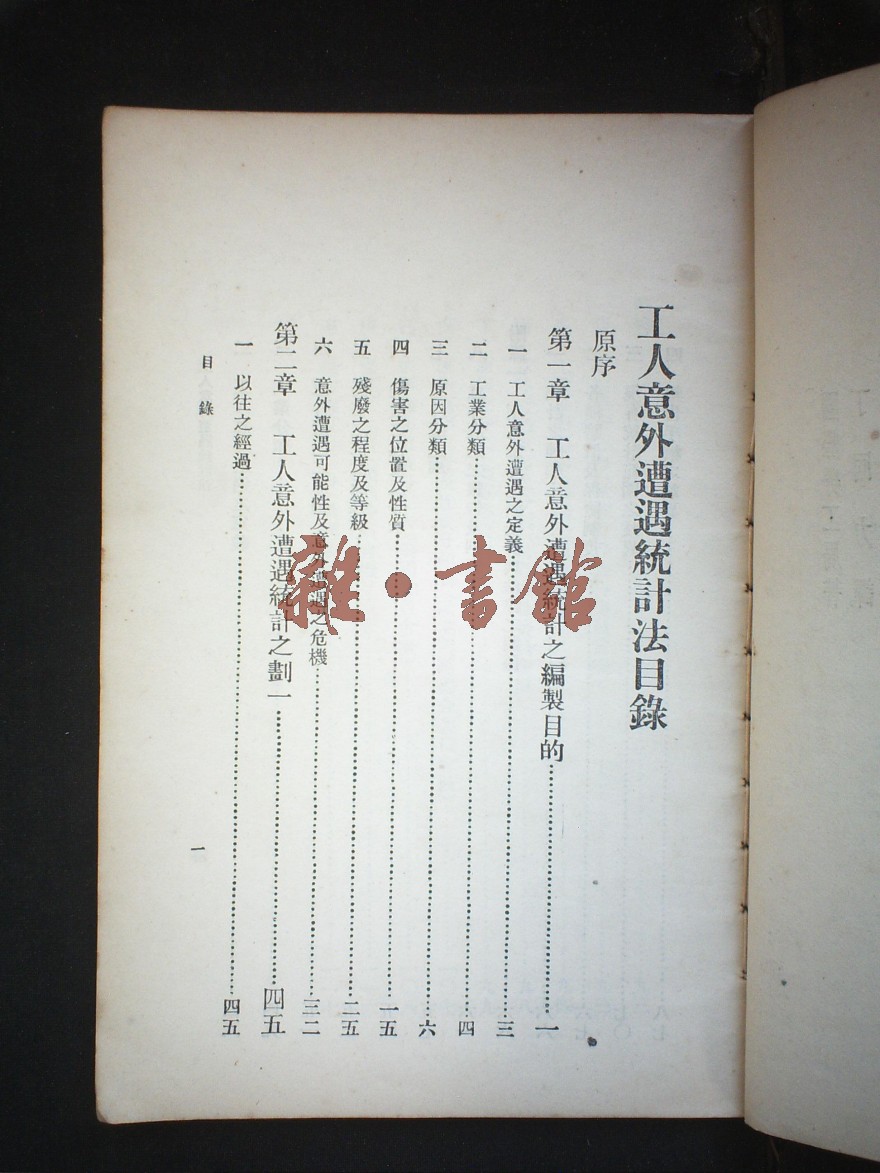 工人意外遭遇統計法目錄
原序
第一章　工人意外遭遇統計之編製目的……一
一　工人意外遭遇之定義……三
二　工業分類……四
三　原因分類……六
四　傷害之位置及性質……一五
五　殘廢之程度及等級……二五
六　意外遭遇可能性及意外遭遇之危機……三二
第二章　工人意外遭遇統計之劃一……四五
一　以往之經過……四五
目錄
一
雜·書館